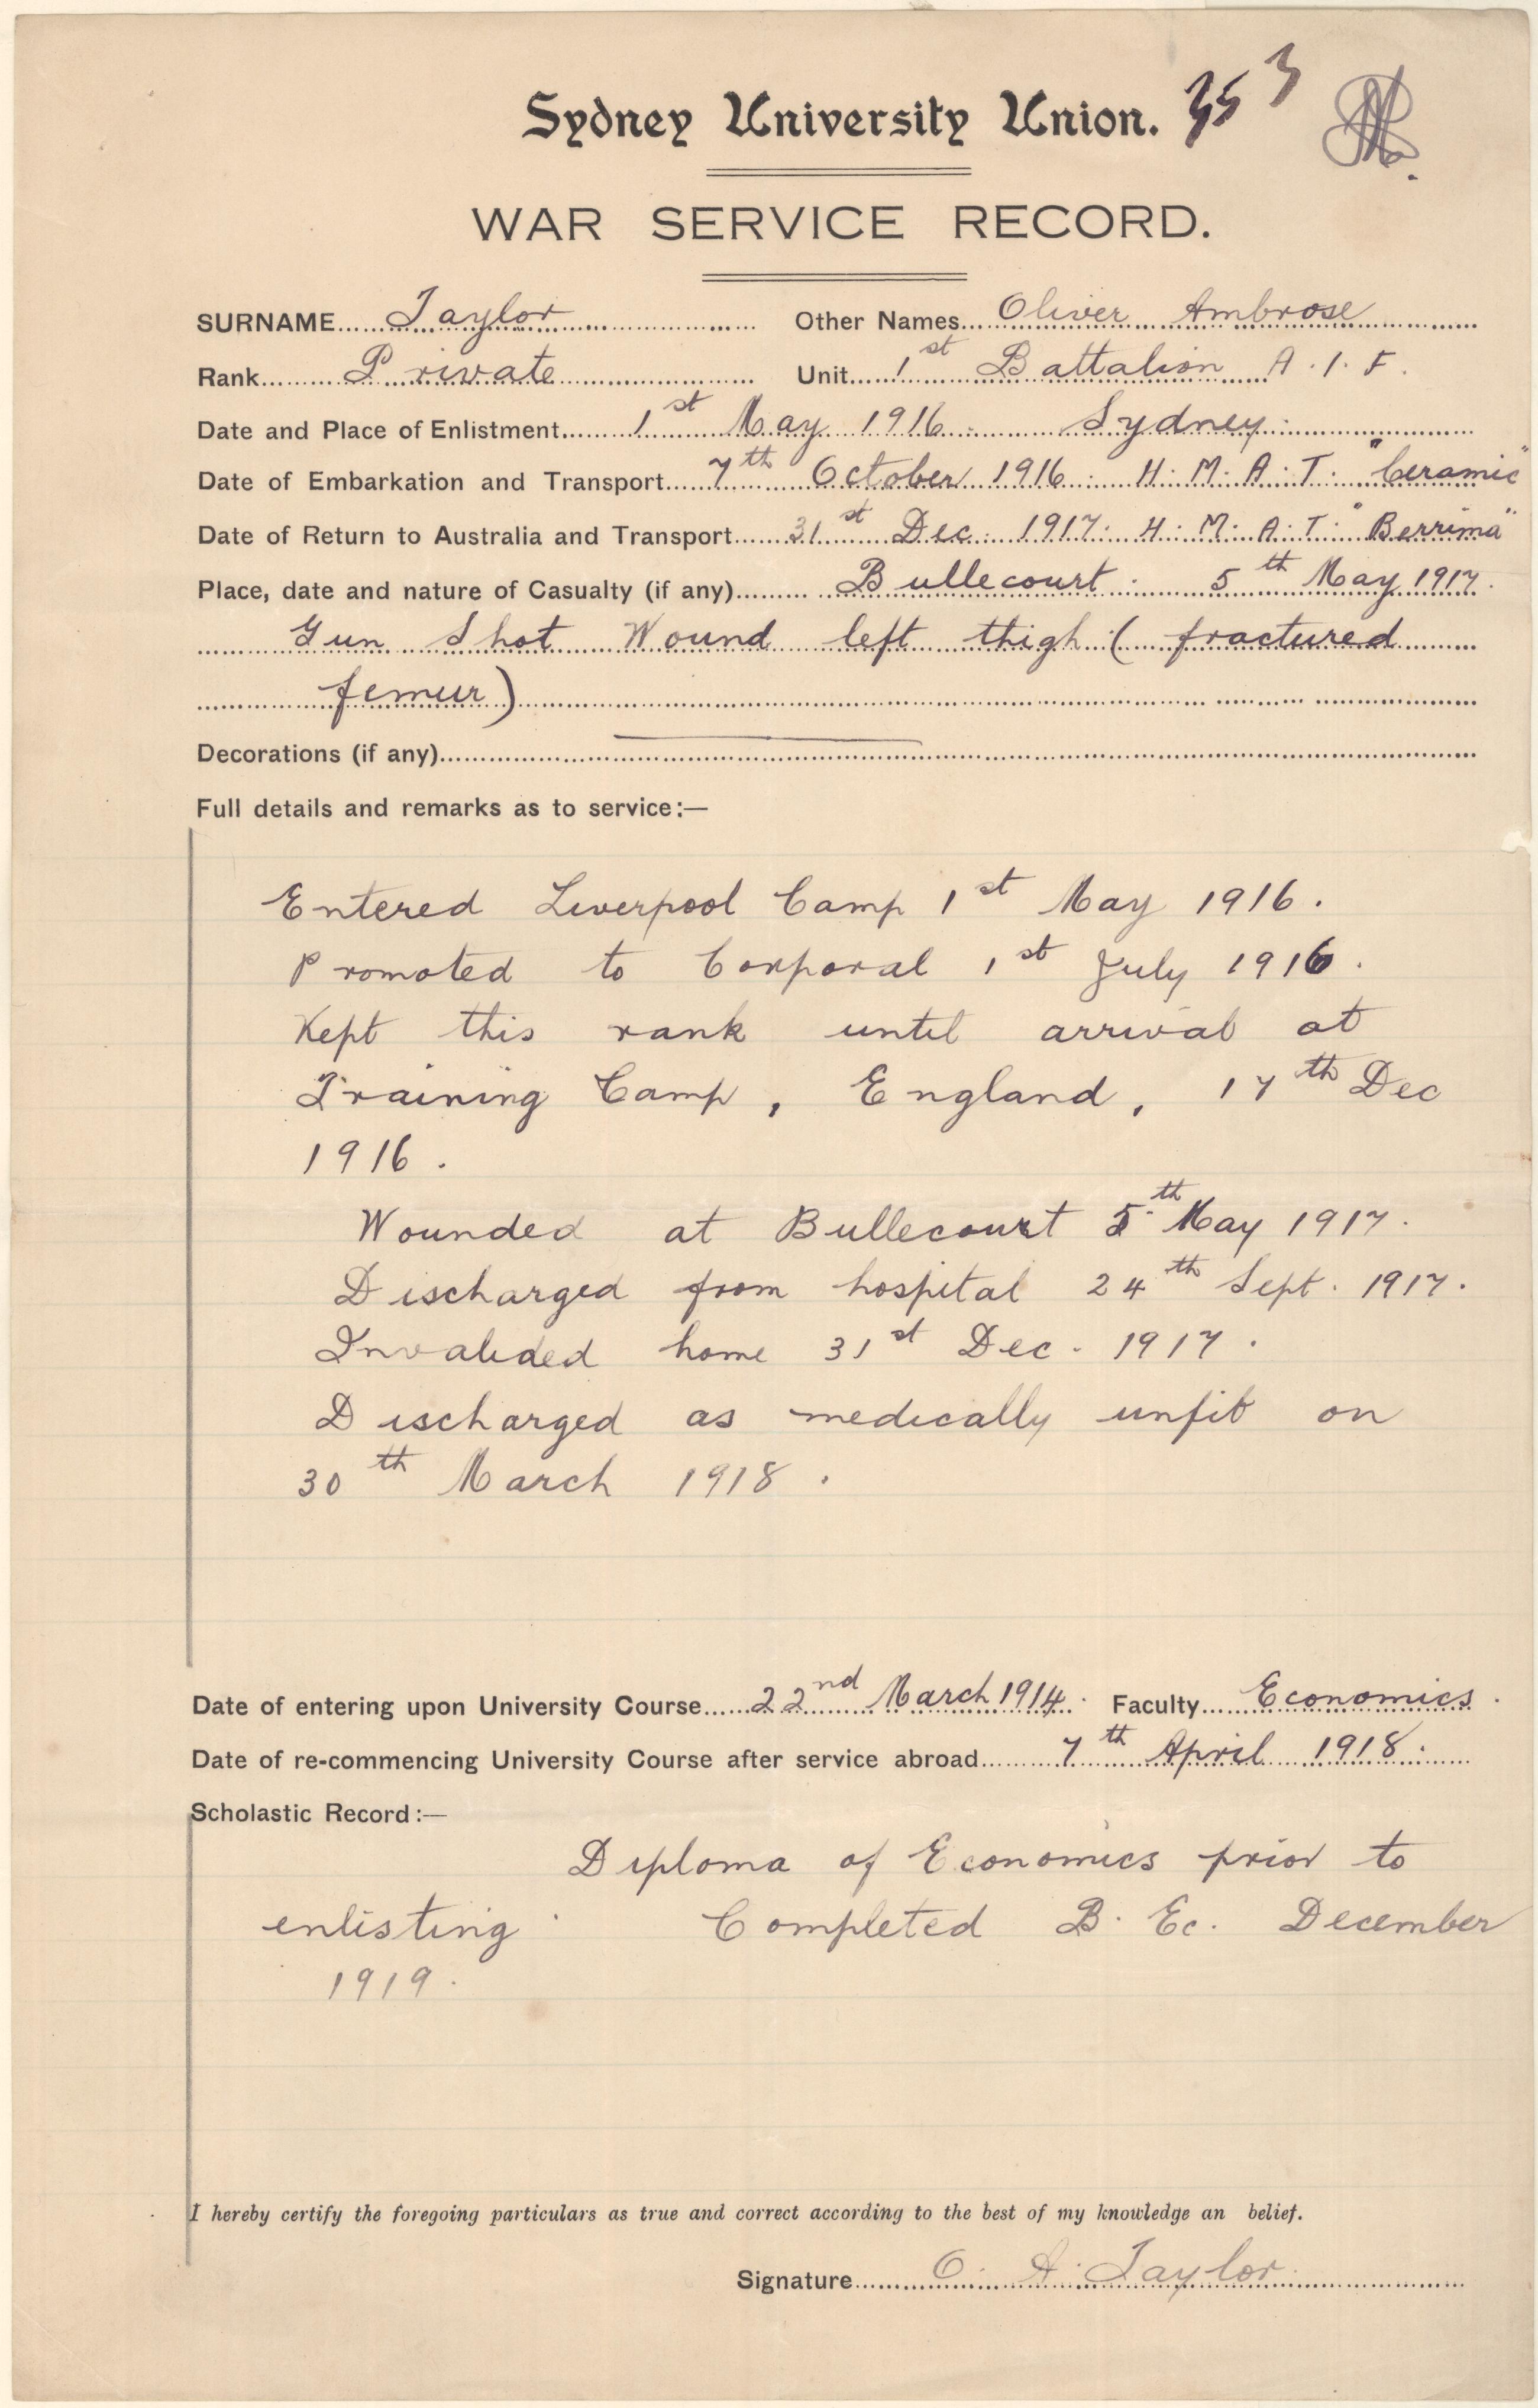 Sydney University Union. 353
WAR SERVICE RECORD.
SURNAME Taylor Other Names Oliver Ambrose
Rank Private Unit 1st Battalion A.I.F.
Date and Place of Enlistment 1st May 1916. Sydney.
Date of Embarkation and Transport 7th October 1916. H.M.A.T. "Ceramic"
Date of Return to Australia and Transport 31st Dec. 1917. H.M.A.T. "Berrima"
Place, date and nature of Casualty (if any) Bullecourt. 5th May 1917.
Gun Shot Wound left thigh (fractured
femur)
Decorations (if any)
Full details and remarks as to service:—
Entered Liverpool Camp 1st May 1916.
Promoted to Corporal 1st July 1916.
Kept this rank until arrival at
Training Camp, England, 17th Dec
1916.
Wounded at Bullecourt 5th May 1917.
Discharged from hospital 24th Sept. 1917.
Invalided home 31st Dec. 1917.
Discharged as medically unfit on
30th March 1918.
Date of entering upon University Course 22nd March 1914. Faculty Economics.
Date of re-commencing University Course after service abroad 7th April 1918.
Scholastic Record:—
Diploma of Economics prior to
enlisting. Completed B. Ec. December
1919.
I hereby certify the foregoing particulars as true and correct according to the best of my knowledge an belief.
Signature O. A. Taylor